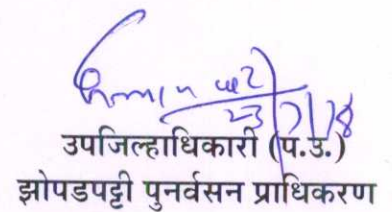 23/7/18
उपजिल्हाधिकारी (प.उ.)
झोपडपट्टी पुनर्वसन प्राधिकरण